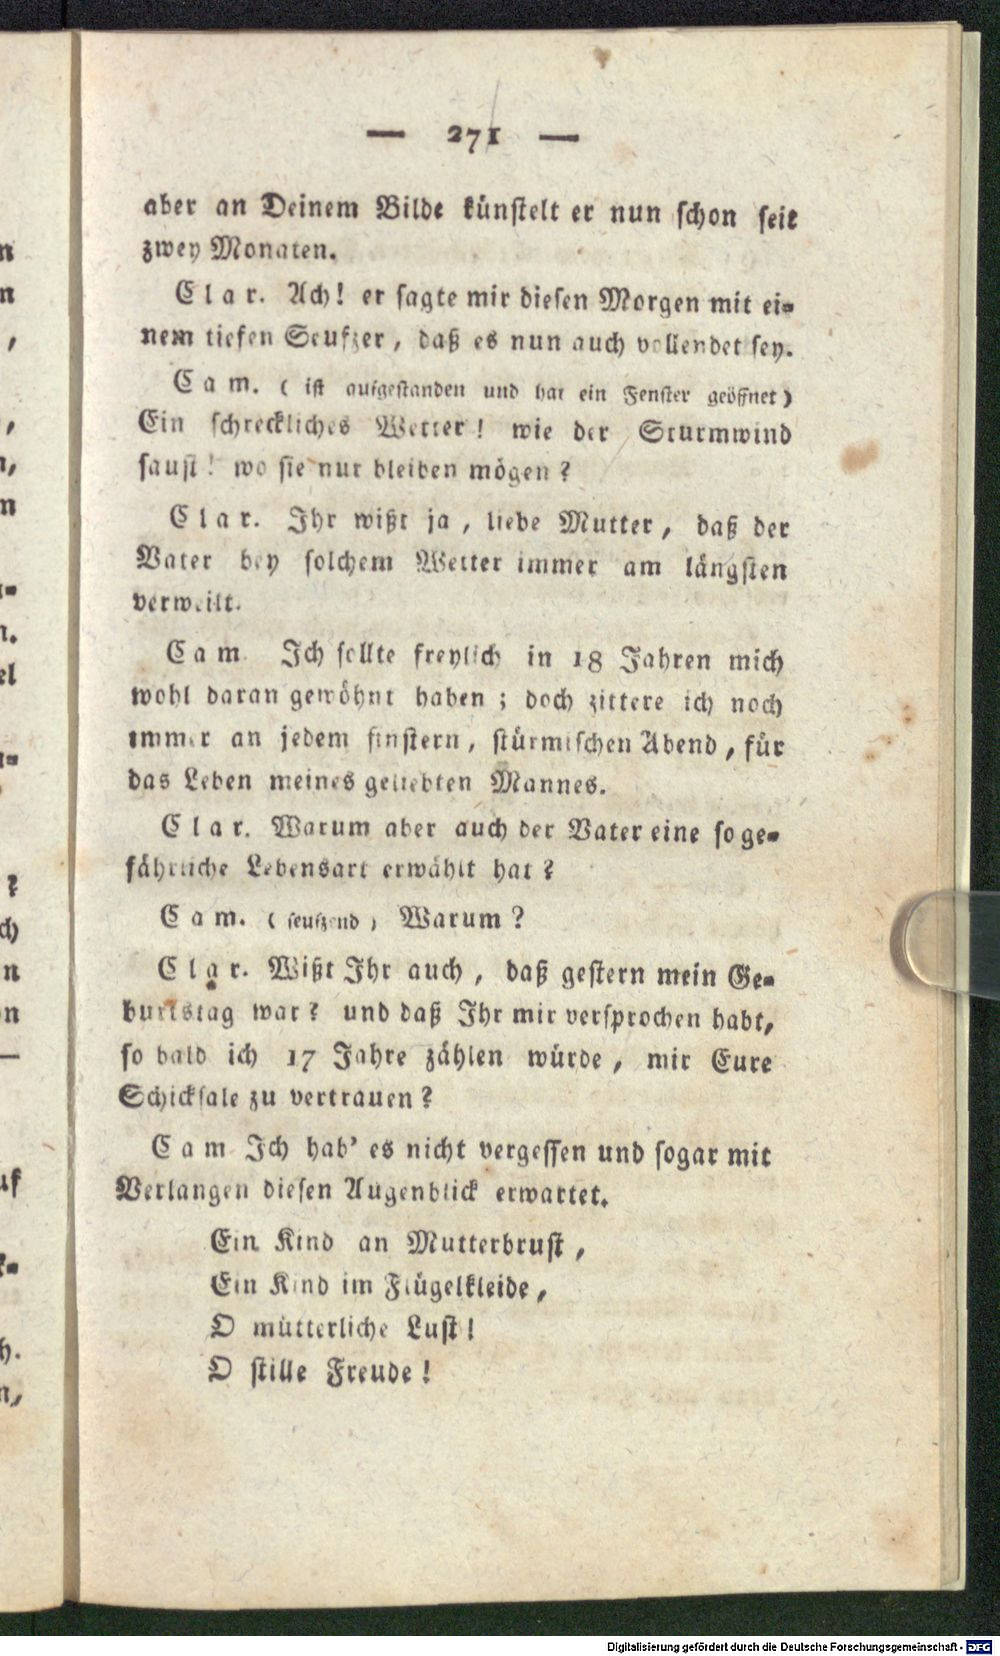 — 271 —
aber an Deinem Bilde künſtelt er nun ſchon ſeit
zwey Monaten.
Clar. Ach! er ſagte mir dieſen Morgen mit ei-
nem tiefen Seufzer, daß es nun auch vollendet ſey.
Cam. (iſt aufgeſtanden und hat ein Fenſter geöffnet)
Ein ſchreckliches Wetter! wie der Sturmwind
ſauſt! wo ſie nur bleiben mögen?
Clar. Ihr wißt ja, liebe Mutter, daß der
Vater bey ſolchem Wetter immer am längſten
verweilt.
Cam. Ich ſollte freylich in 18 Jahren mich
wohl daran gewöhnt haben; doch zittere ich noch
immer an jedem finſtern, ſtürmiſchen Abend, für
das Leben meines geliebten Mannes.
Clar. Warum aber auch der Vater eine ſo ge-
fährliche Lebensart erwählt hat?
Cam. (ſeufzend) Warum?
Clar. Wißt Ihr auch, daß geſtern mein Ge-
burtstag war? und daß Ihr mir verſprochen habt,
ſo bald ich 17 Jahre zählen würde, mir Eure
Schickſale zu vertrauen?
Cam Ich hab' es nicht vergeſſen und ſogar mit
Verlangen dieſen Augenblick erwartet.
Ein Kind an Mutterbruſt,
Ein Kind im Flügelkleide,
O mütterliche Luſt!
O ſtille Freude!
Digitalisierung gefördert durch die Deutsche Forschungsgemeinschaft - DFG